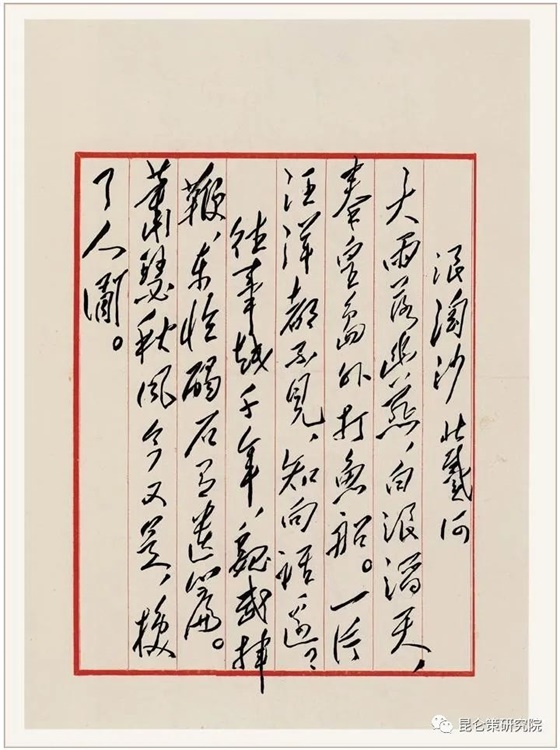 浪淘沙 北戴河
大雨落幽燕,白浪滔天,
秦皇島外打魚船。一片
汪洋都不見,知向誰邊?
往事越千年,魏武揮
鞭,东临碣石有遺篇。
蕭瑟秋風今又是,换
了人间。
昆仑策研究院